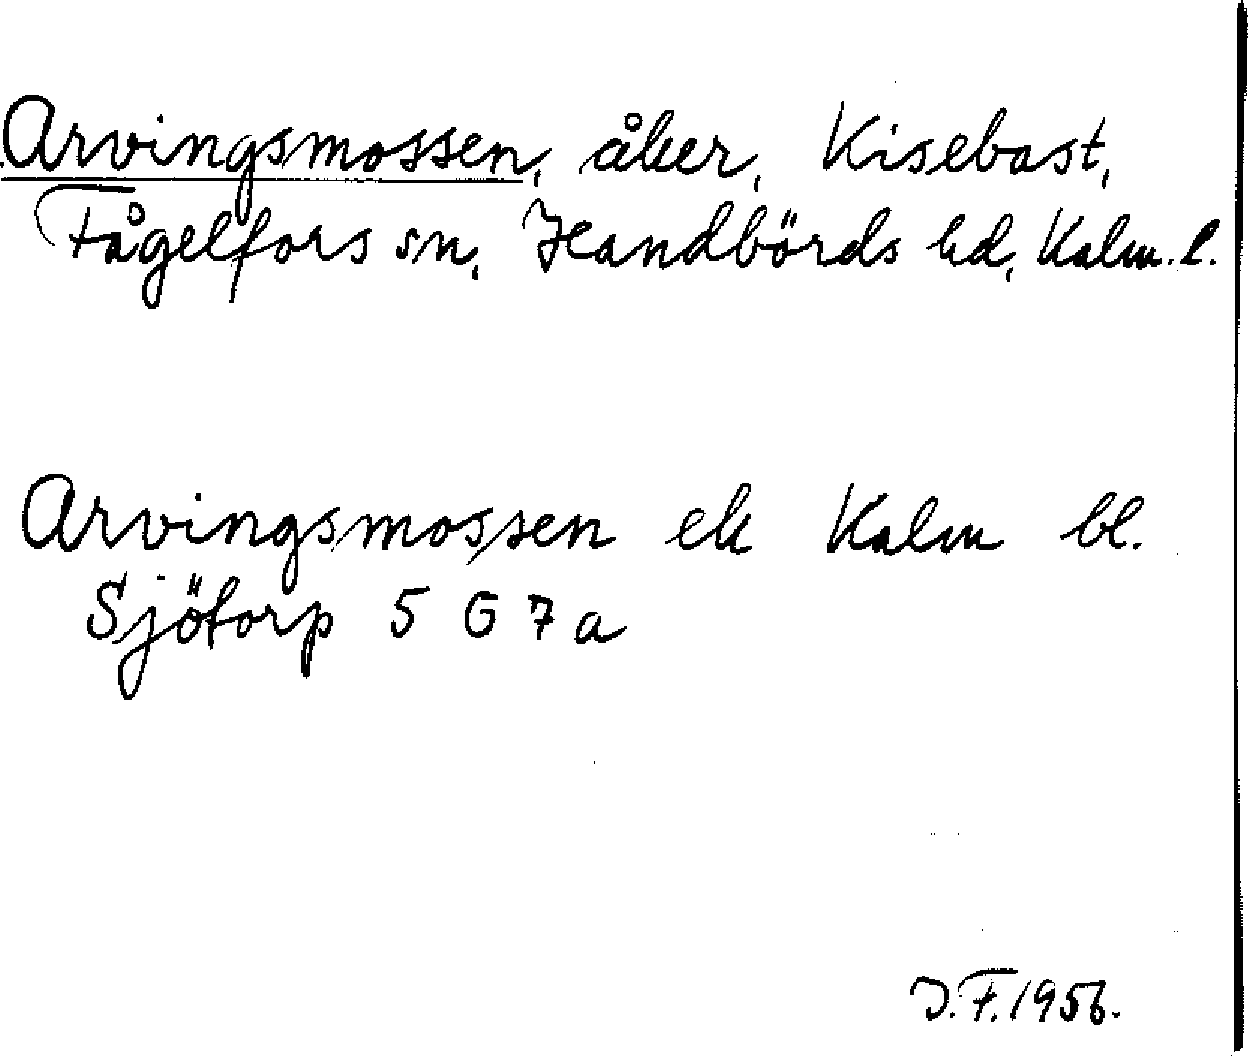 Arvingsmossen, åker, Kisebost,
Fågelfors sn, Handbörds hd, Kalm. l.
Arvingsmossen ek Kalm bl.
Sjötorp 5 G 7 a
J.F. 1956.